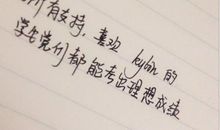 所有支持，喜欢 kylin 的
学生党们都能考出理想成绩